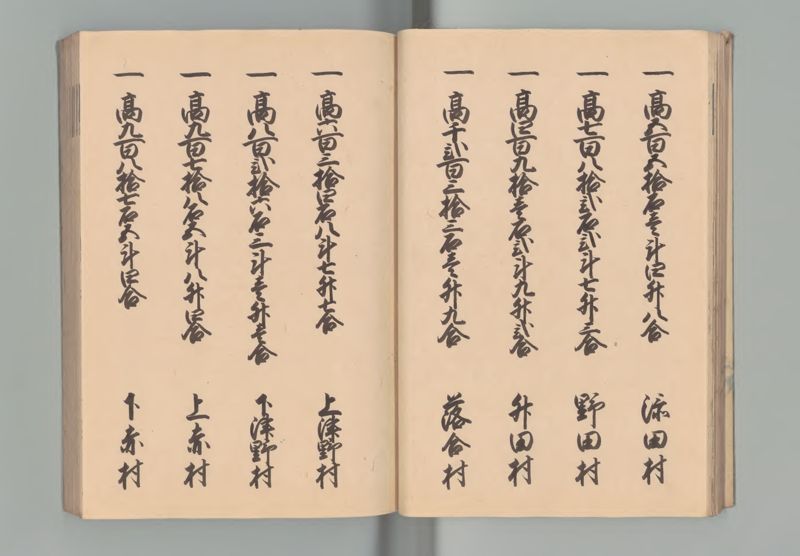 一 高五百五拾石壱斗四升八合 添田村
一 高七百八拾弐石弐斗七升三合 野田村
一 高四百九拾壱石弐斗九升弐合 升田村
一 高千弐百三拾三石壱升九合 落合村
一 高六百三拾四石八斗七升七合 上津野村
一 高八百弐拾六石三斗壱升壱合 下津野村
一 高九百七拾八石五斗八升四合 上赤村
一 高九百八拾七石五斗四合 下赤村